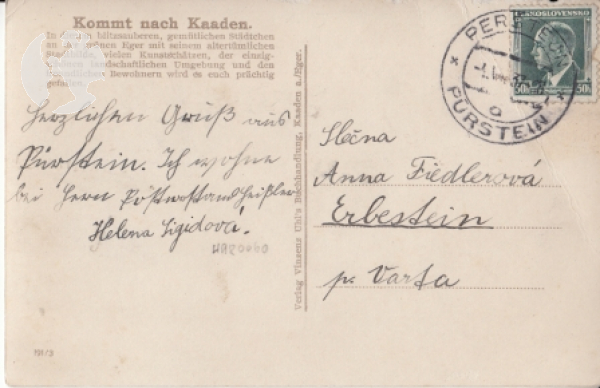 Kommt nach Kaaden.
In diesem blitzsauberen, gemütlichen Städtchen
an der grünen Eger mit seinem altertümlichen
Stadtbilde, vielen Kunstschätzen, der einzig-
schönen landschaftlichen Umgebung und den
freundlichen Bewohnern wird es euch prächtig
gefallen.
Herzlichen Gruß aus
Pürstein. Ich wohne
bei Herrn
Helena
Verlag Vinzenz Uhl's Buchhandlung, Kaaden a./Eger.
ČESKOSLOVENSKO
50h 50h
PERŠTEJN
PÜRSTEIN
a
Slečna
Anna Fiedlerová
Erbestein
p. Varta
191/3